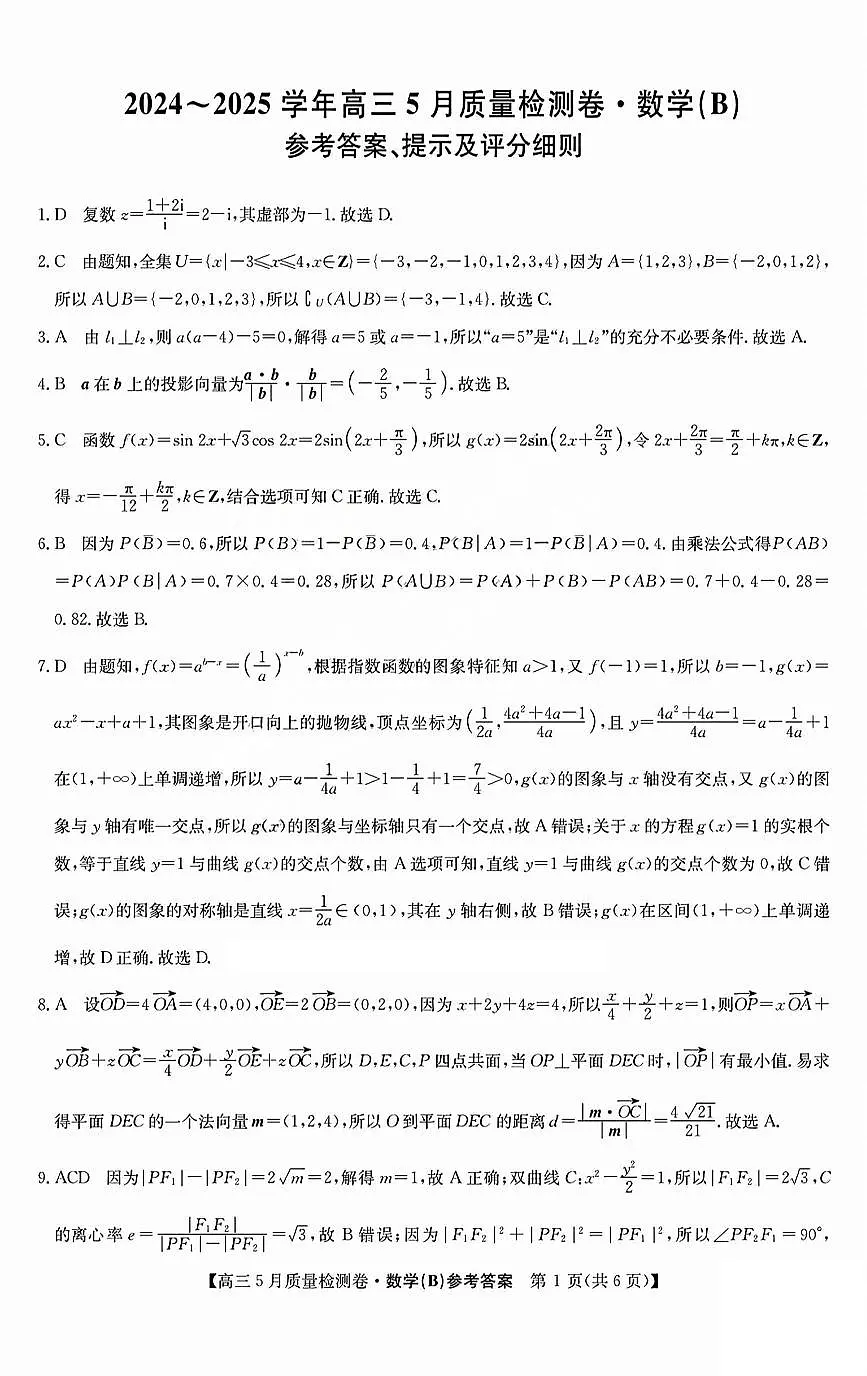 2024～2025 学年高三 5 月质量检测卷·数学(B)
参考答案、提示及评分细则
1. D 复数 z=\frac{1+2i}{i}=2-i,其虚部为-1. 故选 D.
2. C 由题知,全集 U={x|-3≤x≤4,x∈Z}={-3,-2,-1,0,1,2,3,4},因为 A={1,2,3},B={-2,0,1,2},
所以 A∪B={-2,0,1,2,3},所以∁_U(A∪B)={-3,-1,4}. 故选 C.
3. A 由 l₁⊥l₂,则 a(a-4)-5=0,解得 a=5 或 a=-1,所以“a=5”是“l₁⊥l₂”的充分不必要条件. 故选 A.
4. B a 在 b 上的投影向量为\frac{a·b}{|b|}·\frac{b}{|b|}=(-\frac{2}{5},-\frac{1}{5}). 故选 B.
5. C 函数 f(x)=sin 2x+√3cos 2x=2sin(2x+\frac{π}{3}),所以 g(x)=2sin(2x+\frac{2π}{3}),令 2x+\frac{2π}{3}=\frac{π}{2}+kπ,k∈Z,
得 x=-\frac{π}{12}+\frac{kπ}{2},k∈Z,结合选项可知 C 正确. 故选 C.
6. B 因为 P(B̄)=0.6,所以 P(B)=1-P(B̄)=0.4,P(B|A)=1-P(B̄|A)=0.4. 由乘法公式得P(AB)
=P(A)P(B|A)=0.7×0.4=0.28,所以 P(A∪B)=P(A)+P(B)-P(AB)=0.7+0.4-0.28=
0.82. 故选 B.
7. D 由题知,f(x)=a^{b-x}=(\frac{1}{a})^{x-b},根据指数函数的图象特征知 a>1,又 f(-1)=1,所以 b=-1,g(x)=
ax²-x+a+1,其图象是开口向上的抛物线,顶点坐标为(\frac{1}{2a},\frac{4a²+4a-1}{4a}),且 y=\frac{4a²+4a-1}{4a}=a-\frac{1}{4a}+1
在(1,+∞)上单调递增,所以 y=a-\frac{1}{4a}+1>1-\frac{1}{4}+1=\frac{7}{4}>0,g(x)的图象与 x 轴没有交点,又 g(x)的图
象与 y 轴有唯一交点,所以 g(x)的图象与坐标轴只有一个交点,故 A 错误;关于 x 的方程 g(x)=1 的实根个
数,等于直线 y=1 与曲线 g(x)的交点个数,由 A 选项可知,直线 y=1 与曲线 g(x)的交点个数为 0,故 C 错
误;g(x)的图象的对称轴是直线 x=\frac{1}{2a}∈(0,1),其在 y 轴右侧,故 B 错误;g(x)在区间(1,+∞)上单调递
增,故 D 正确. 故选 D.
8. A 设\overrightarrow{OD}=4\overrightarrow{OA}=(4,0,0),\overrightarrow{OE}=2\overrightarrow{OB}=(0,2,0),因为 x+2y+4z=4,所以\frac{x}{4}+\frac{y}{2}+z=1,则\overrightarrow{OP}=x\overrightarrow{OA}+
y\overrightarrow{OB}+z\overrightarrow{OC}=\frac{x}{4}\overrightarrow{OD}+\frac{y}{2}\overrightarrow{OE}+z\overrightarrow{OC},所以 D,E,C,P 四点共面,当 OP⊥平面 DEC 时,|\overrightarrow{OP}|有最小值. 易求
得平面 DEC 的一个法向量 m=(1,2,4),所以 O 到平面 DEC 的距离 d=\frac{|m·\overrightarrow{OC}|}{|m|}=\frac{4√21}{21}. 故选 A.
9. ACD 因为|PF₁|-|PF₂|=2√m=2,解得 m=1,故 A 正确;双曲线 C:x²-\frac{y²}{2}=1,所以|F₁F₂|=2√3,C
的离心率 e=\frac{|F₁F₂|}{|PF₁|-|PF₂|}=√3,故 B 错误;因为|F₁F₂|²+|PF₂|²=|PF₁|²,所以∠PF₂F₁=90°,
【高三 5 月质量检测卷·数学(B)参考答案 第 1 页(共 6 页)】